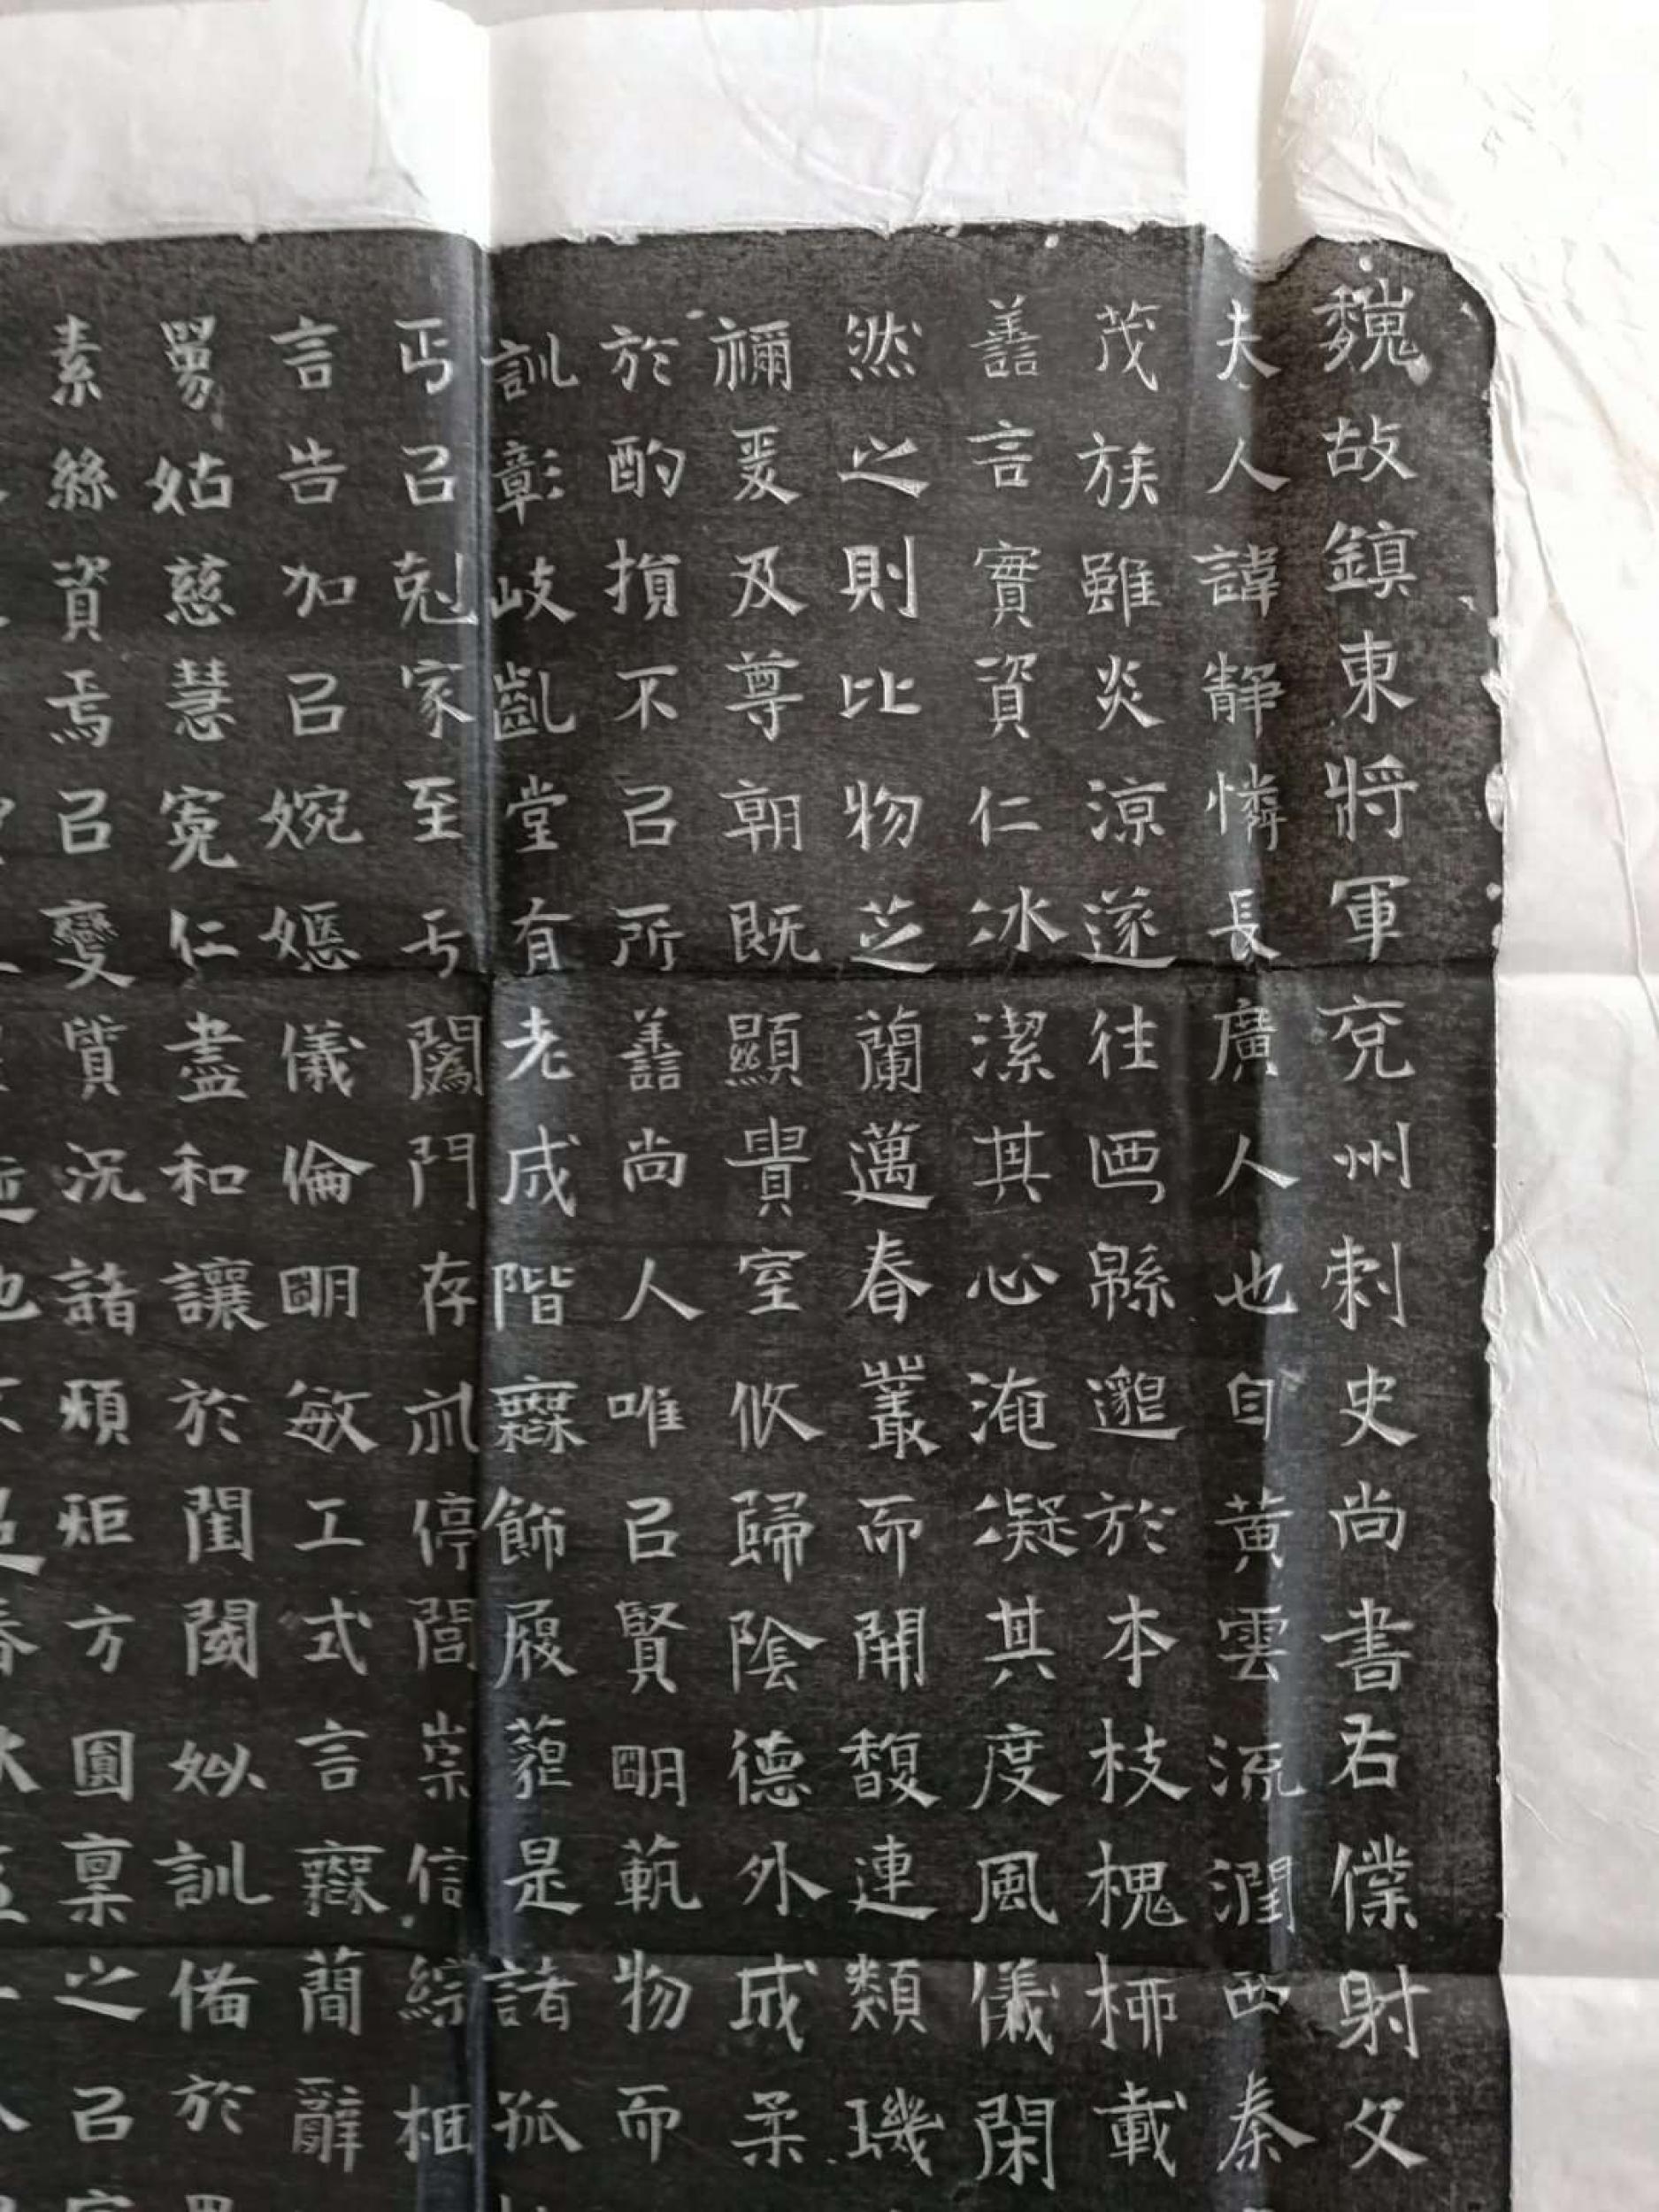 魏故鎮東將軍兗州刺史尚書右僕射文
夫人諱靜憐長廣人也自黃雲流潤西秦
茂族雖炎涼遂往西緜邈於本枝槐柳載
善言實資仁冰潔其心淹凝其度風儀閑
然之則比物芝蘭邁春叢而開馥連類璣
禰爰及尊朝既顯貴室攸歸陰德外成柔
於酌損不㠯所善尚人唯㠯賢明範物而
訓彰岐凱堂有老成階無飾履藐是諸孤
丐㠯剋家至于闔門存沠停閭崇信綜梱
言告加㠯婉嫕儀倫明敏工式言無簡辭
舅姑慈慧寬仁盡和讓於閨閫姒訓偹於
素絲資焉㠯變質況諸頻矩方圓稟之㠯